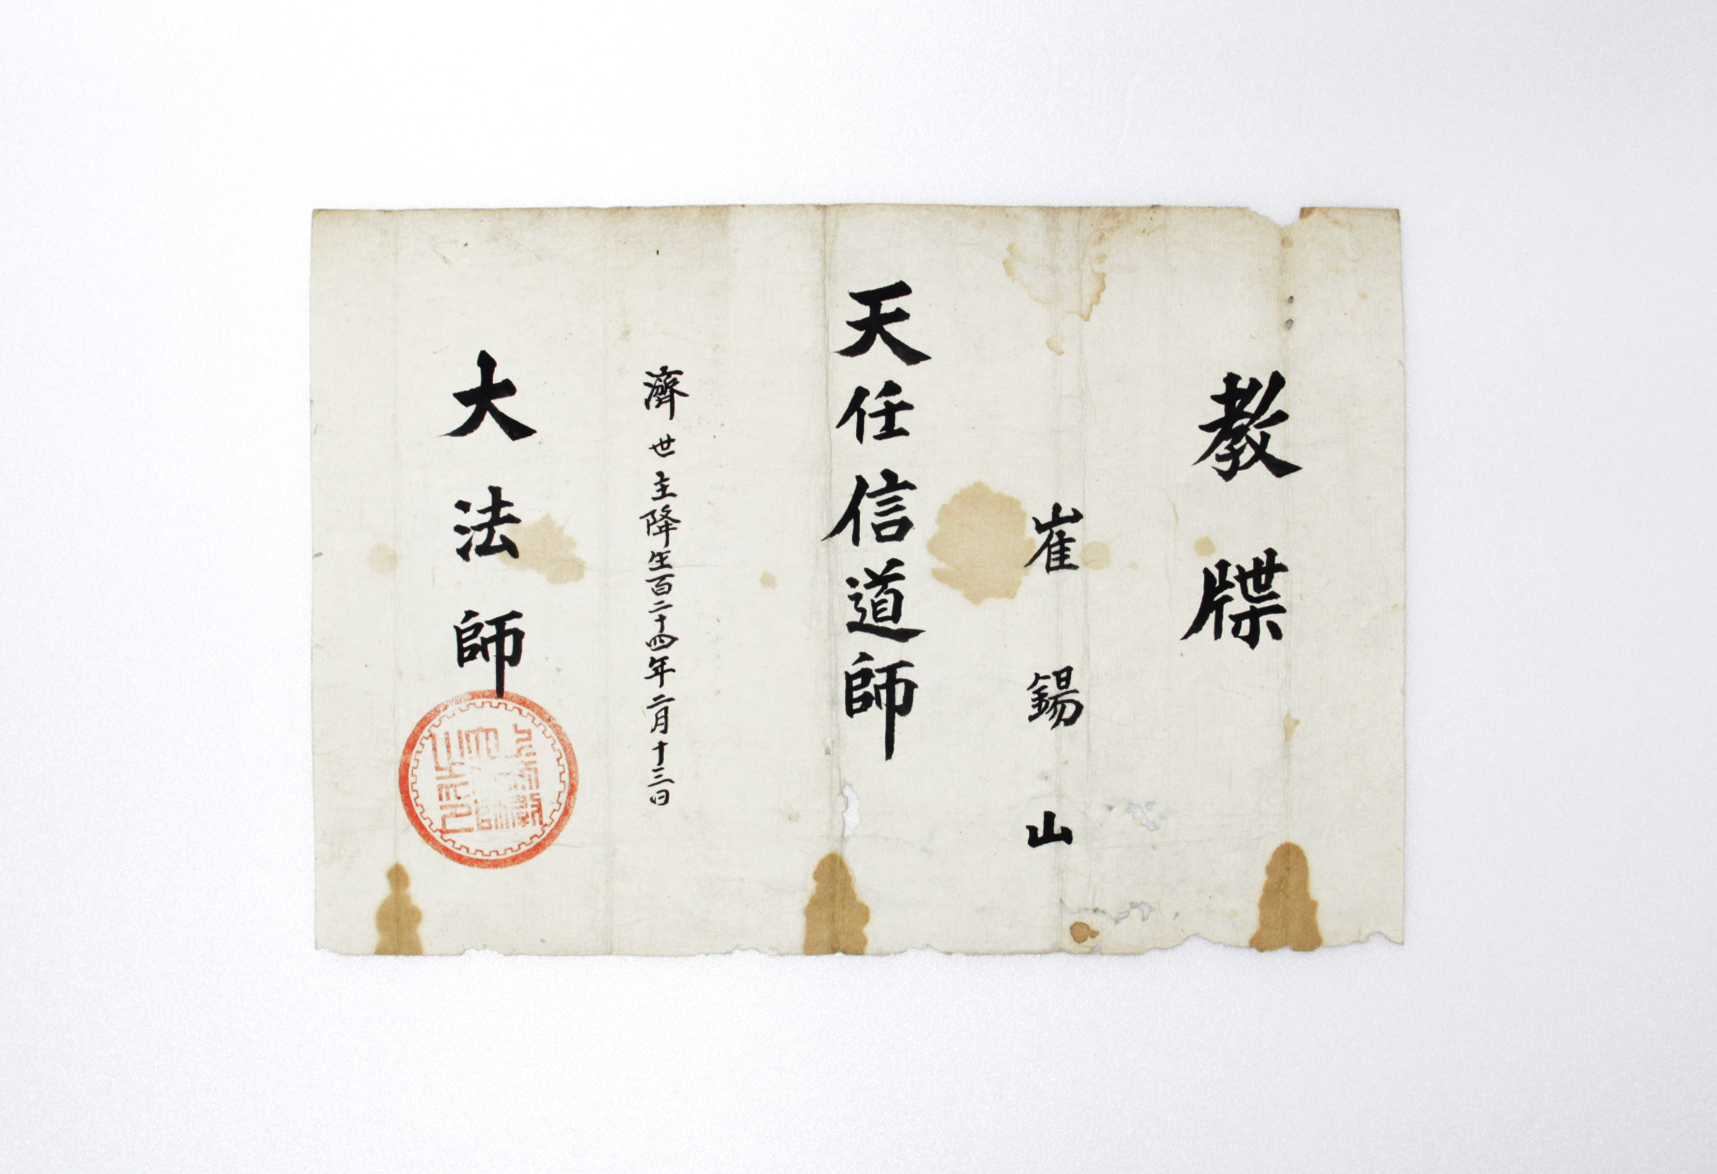 教牒
崔錫山
天任信道師
濟世主降生百二十四年二月十三日
大法師